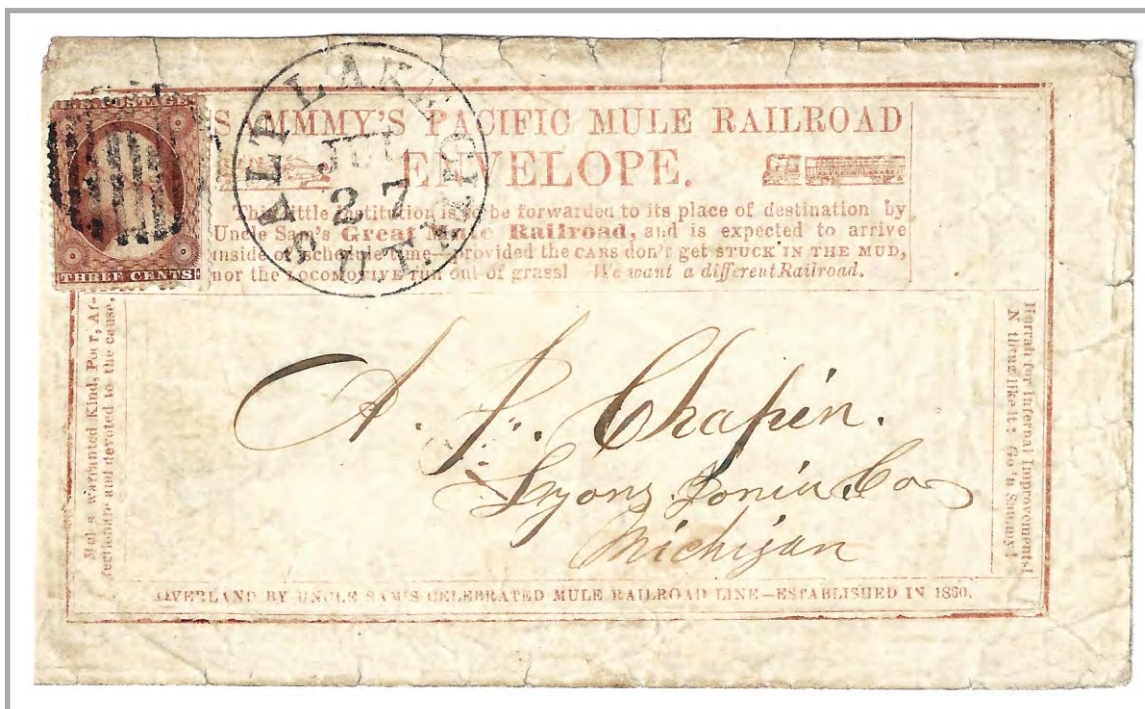 U.S. POSTAGE
THREE CENTS
SALT LAKE CITY
UTAH
27
SAMMMY'S PACIFIC MULE RAILROAD
ENVELOPE.
This little institution is to be forwarded to its place of destination by
Uncle Sam's Great Mule Railroad, and is expected to arrive
inside of schedule time—provided the CARS don't get STUCK IN THE MUD,
nor the LOCOMOTIVE run out of grass! We want a different Railroad.
warranted Kind, Af-
fectionate and devoted to the cause.
Hurrah for Infernal Improvements!
N thing like it; Go 'n Sammy!
A. J. Chapin.
Lyons Ionia Co
Michigan
OVERLAND BY UNCLE SAM'S CELEBRATED MULE RAILROAD LINE—ESTABLISHED IN